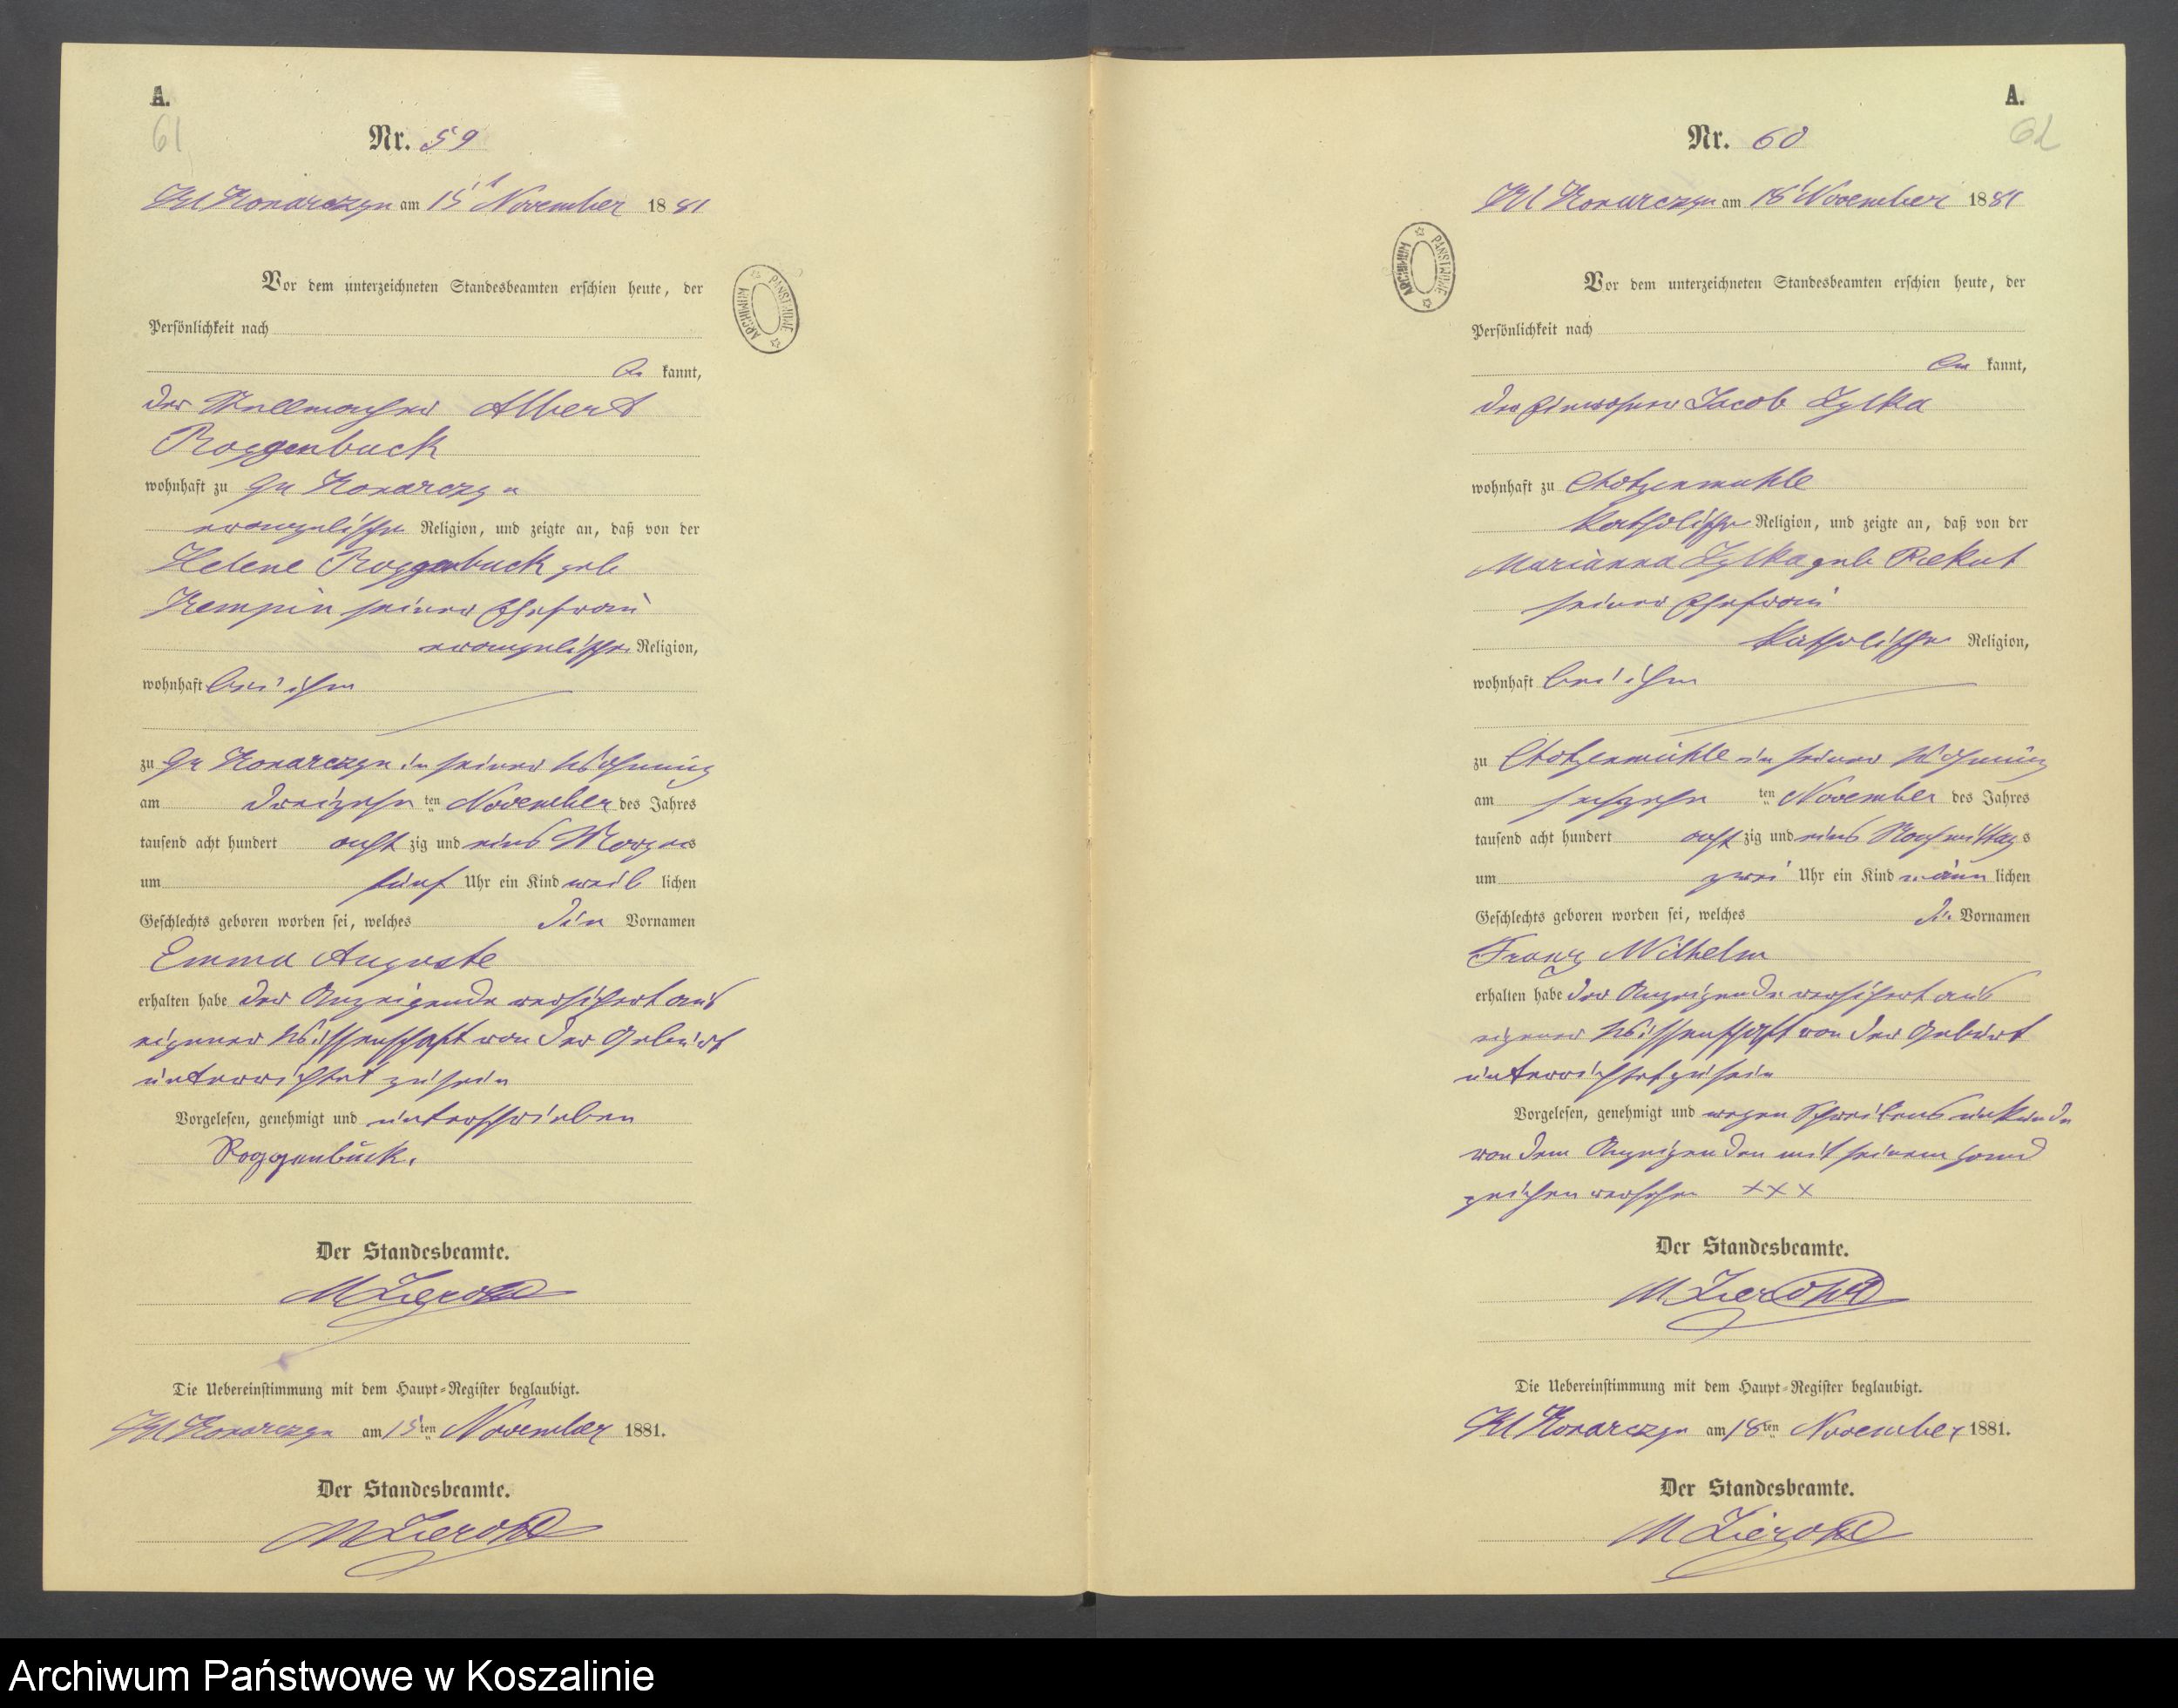 A.
61
Nr. 59
Kl Konarczyn am 15t November 1881
Vor dem unterzeichneten Standesbeamten erschien heute, der
Persönlichkeit nach
be kannt,
der Stellmacher Albert
Roggenbuck
wohnhaft zu Gr Konarczyn
evangelischer Religion, und zeigte an, daß von der
Helene Roggenbuck geb
Kempin seiner Ehefrau
evangelischer Religion,
wohnhaft bei ihm
zu Gr Konarczyn in seiner Wohnung
am dreizehn ten November des Jahres
tausend acht hundert acht zig und eins Morgens
um fünf Uhr ein Kind weib lichen
Geschlechts geboren worden sei, welches die Vornamen
Emma Auguste
erhalten habe der Anzeigende versichert aus
eigener Wissenschaft von der Geburt
unterrichtet zu sein
Vorgelesen, genehmigt und unterschrieben
Roggenbuck.
Der Standesbeamte.
M
Die Uebereinstimmung mit dem Haupt-Register beglaubigt.
Kl Konarczyn am 15ten November 1881.
Der Standesbeamte.
M
ARCHIWUM PAŃSTWOWE
A.
62
Nr. 60
Kl Konarczyn am 18t November 1881
Vor dem unterzeichneten Standesbeamten erschien heute, der
Persönlichkeit nach
be kannt,
der Einwohner Jacob Zylka
wohnhaft zu Chotzenmühle
katholischer Religion, und zeigte an, daß von der
Marianna Zylka geb Rekat
seiner Ehefrau
katholischer Religion,
wohnhaft bei ihm
zu Chotzenmühle in seiner Wohnung
am sechzehn ten November des Jahres
tausend acht hundert acht zig und eins Nachmittags
um zwei Uhr ein Kind männ lichen
Geschlechts geboren worden sei, welches die Vornamen
Franz Wilhelm
erhalten habe der Anzeigende versichert aus
eigener Wissenschaft von der Geburt
unterrichtet zu sein
Vorgelesen, genehmigt und wegen Schreibensunkunde
von dem Anzeigenden mit seinem Hand
zeichen versehen XXX
Der Standesbeamte.
M
Die Uebereinstimmung mit dem Haupt-Register beglaubigt.
Kl Konarczyn am 18ten November 1881.
Der Standesbeamte.
M
ARCHIWUM PAŃSTWOWE
Archiwum Państwowe w Koszalinie